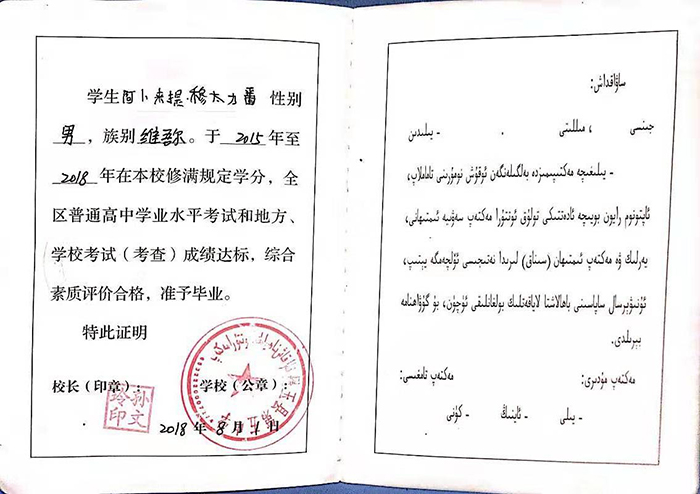 学生阿卜来提·穆太力番 性别
男，族别维吾尔。于 2015年至
2018年在本校修满规定学分，全
区普通高中学业水平考试和地方、
学校考试（考查）成绩达标，综合
素质评价合格，准予毕业。
特此证明
校长（印章）：
学校（公章）：
孙文
玲印
2018年8月1日
ساۋاقداش:
جىنسى ، مىللىتى . - يىلىدىن
- يىلىغىچە مەكتىپىمىزدە بەلگىلەنگەن ئوقۇش نومۇرىنى تاماملاپ،
ئاپتونوم رايون بويىچە ئادەتتىكى تولۇق ئوتتۇرا مەكتەپ سەۋىيە ئىمتىھانى،
يەرلىك ۋە مەكتەپ ئىمتىھان (سىناق) لىرىدا نەتىجىسى ئۆلچەمگە يېتىپ،
ئۇنىۋېرسال ساپاسىنى باھالاشتا لاياقەتلىك بولغانلىقى ئۈچۈن، بۇ گۇۋاھنامە
بېرىلدى.
مەكتەپ مۇدىرى: مەكتەپ تامغىسى:
- يىلى - ئاينىڭ - كۈنى